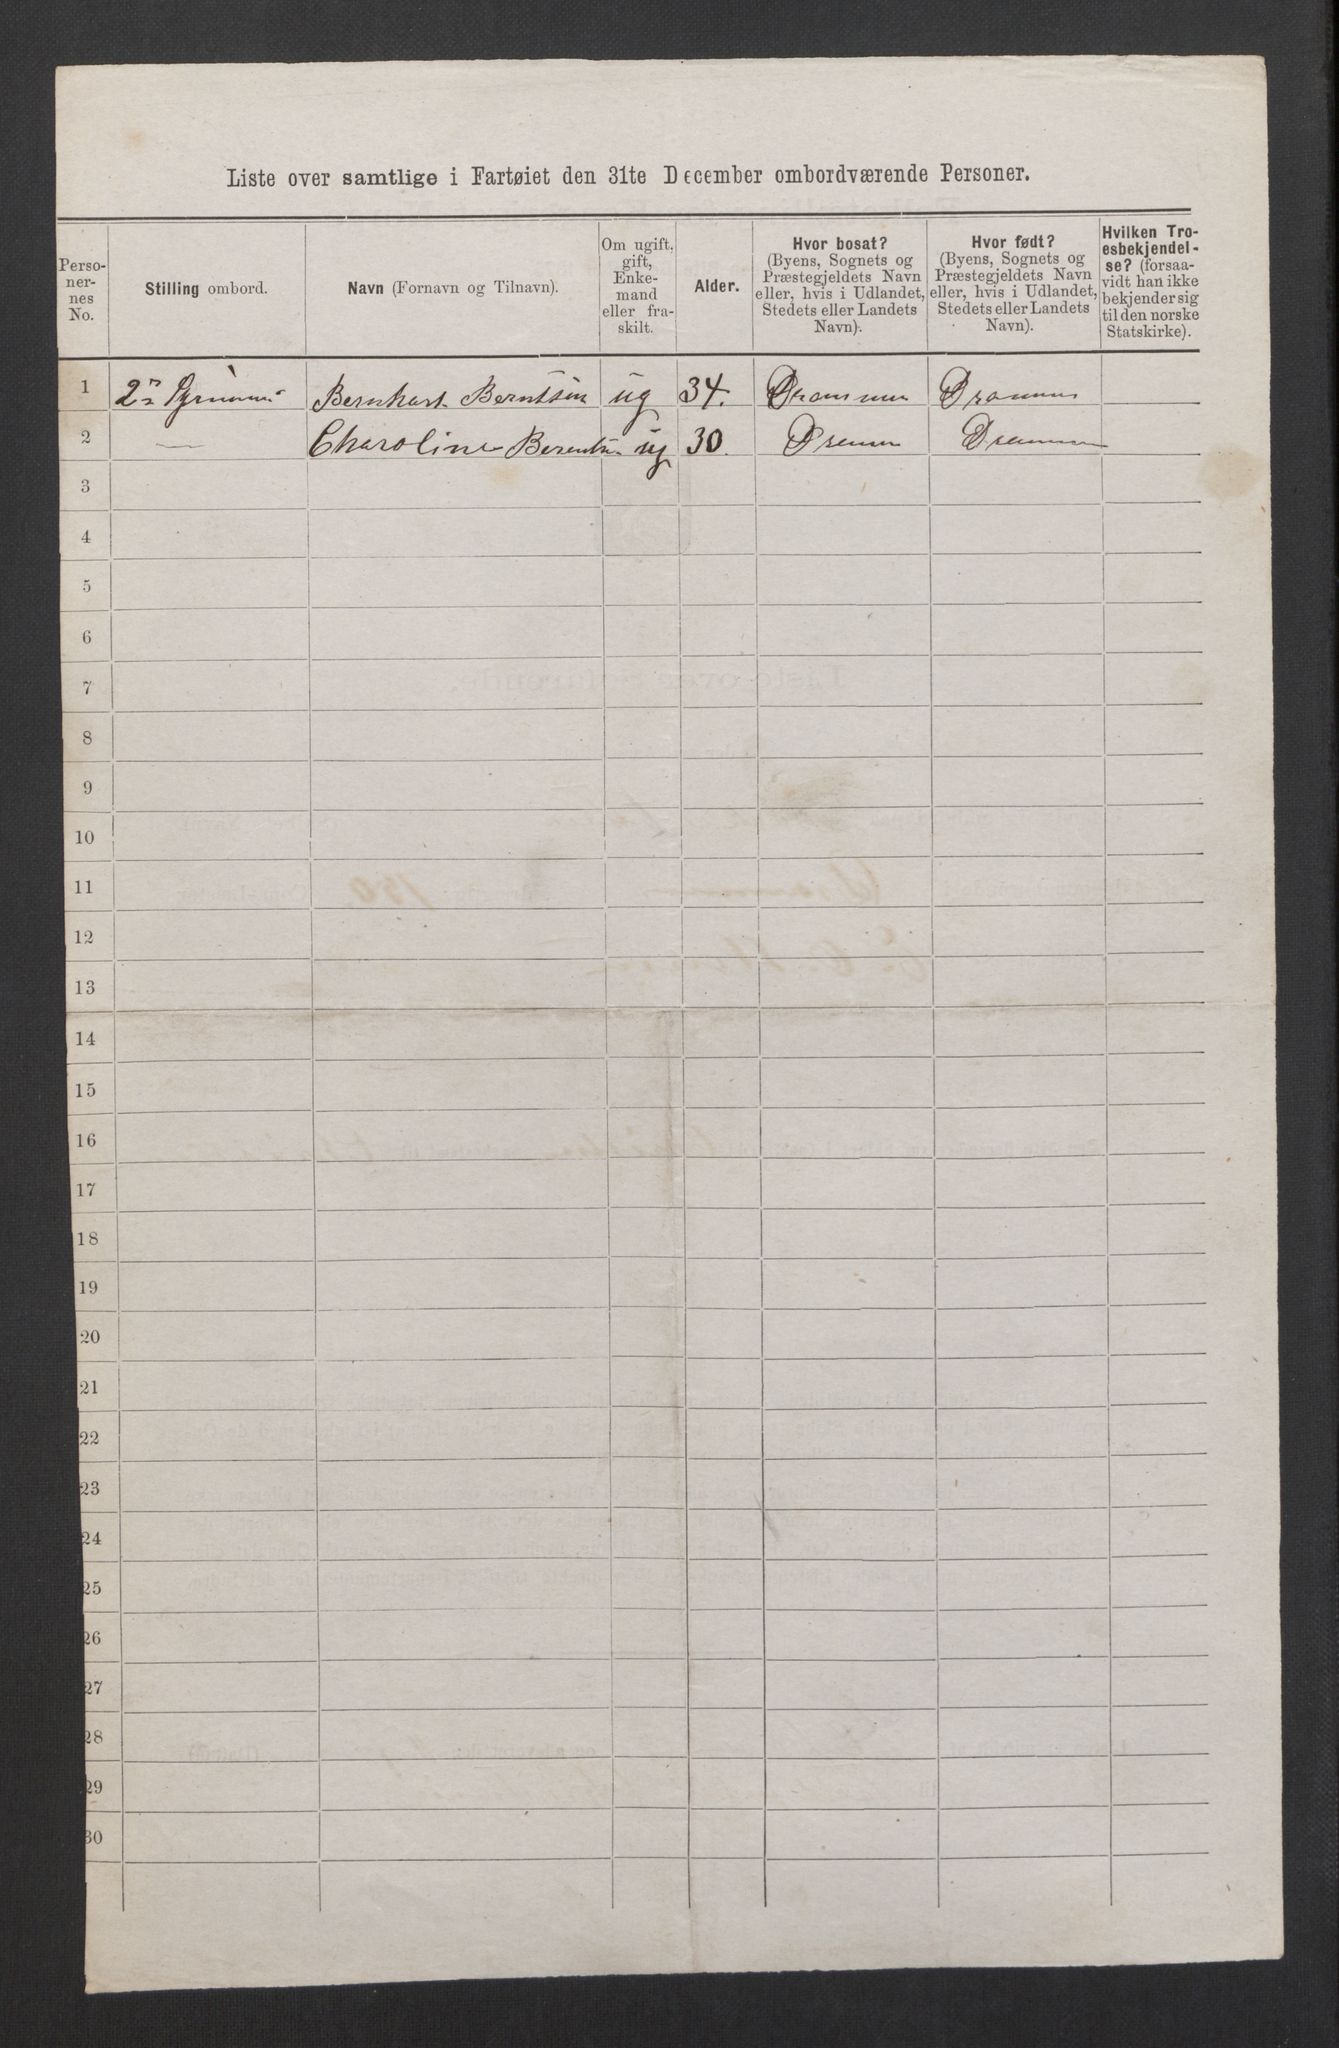 Liste over samtlige i Fartøiet den 31te December ombordværende Personer.
Perso-
ner-
nes
No.
Stilling ombord.
Navn (Fornavn og Tilnavn).
Om ugift,
gift,
Enke-
mand
eller fra-
skilt.
Alder.
Hvor bosat?
(Byens, Sognets og
Præstegjeldets Navn
eller, hvis i Udlandet,
Stedets eller Landets
Navn).
Hvor født?
(Byens, Sognets og
Præstegjeldets Navn
eller, hvis i Udlandet,
Stedets eller Landets
Navn).
Hvilken Tro-
esbekjendel-
se? (forsaa-
vidt han ikke
bekjender sig
til den norske
Statskirke).
1 Bernhart Berntsen ug 34. Drammen Drammen
2 — Charoline Berents. ug 30. Drammen Drammen
3
4
5
6
7
8
9
10
11
12
13
14
15
16
17
18
19
20
21
22
23
24
25
26
27
28
29
30